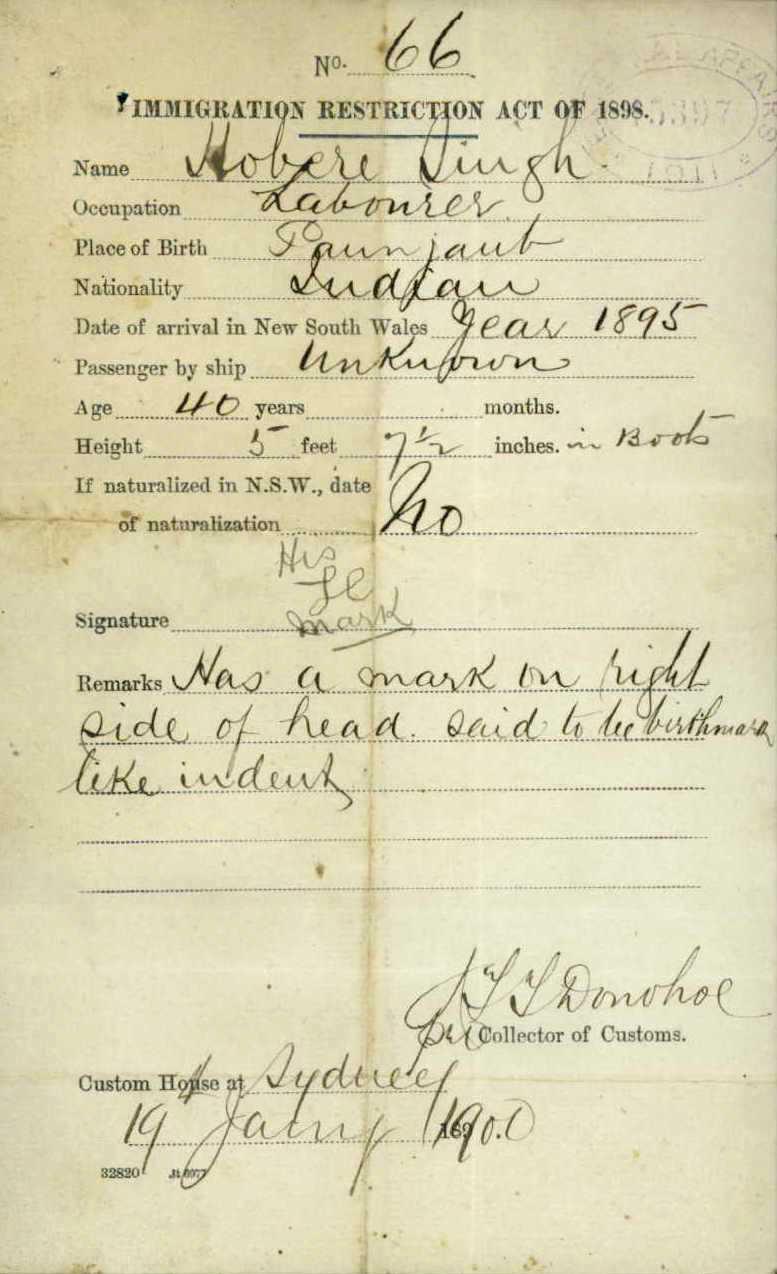 No. 66
IMMIGRATION RESTRICTION ACT OF 1898.
Name Hobere Singh
Occupation Labourer
Place of Birth Paunjaub
Nationality Indian
Date of arrival in New South Wales Year 1895
Passenger by ship Unknown
Age 40 years months.
Height 5 feet 7½ inches. in Boots
If naturalized in N.S.W., date
of naturalization No
His
Signature mark
Remarks Has a mark on right
side of head. said to be birthmark
like indent
Donohoe
Collector of Customs.
Custom House at Sydney
19 Jany 1900
32820